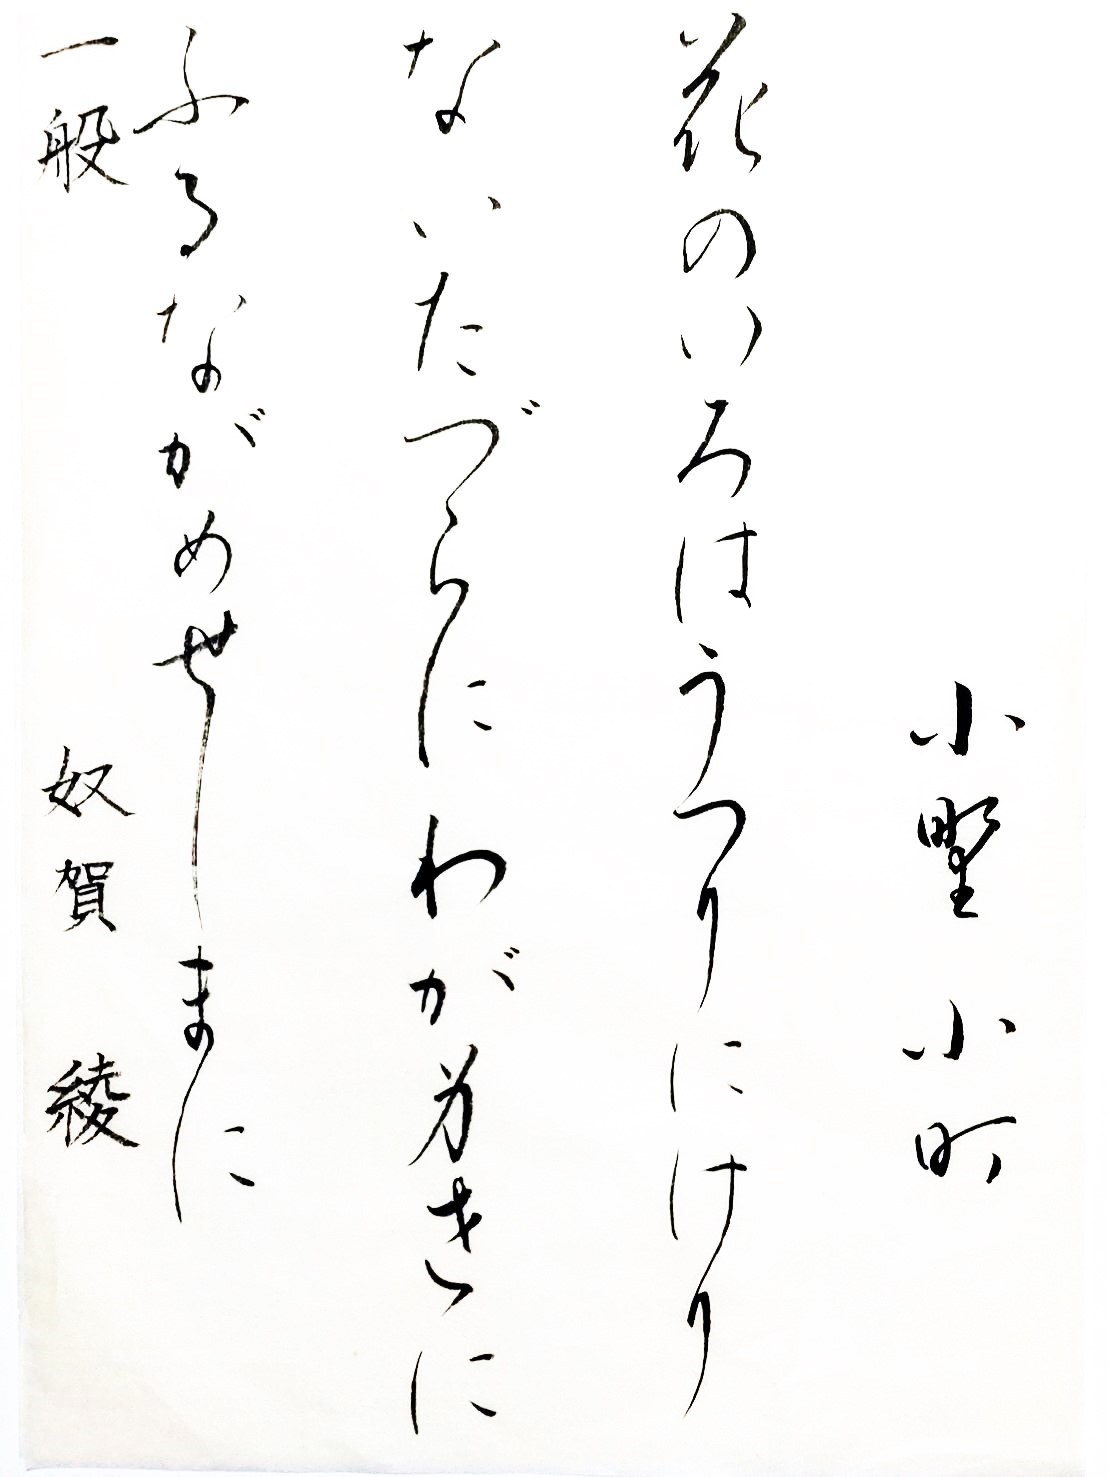 小野小町
花のいろはうつりにけり
ないたづらにわが身世に
ふるながめせしまに
一般 奴賀 綾